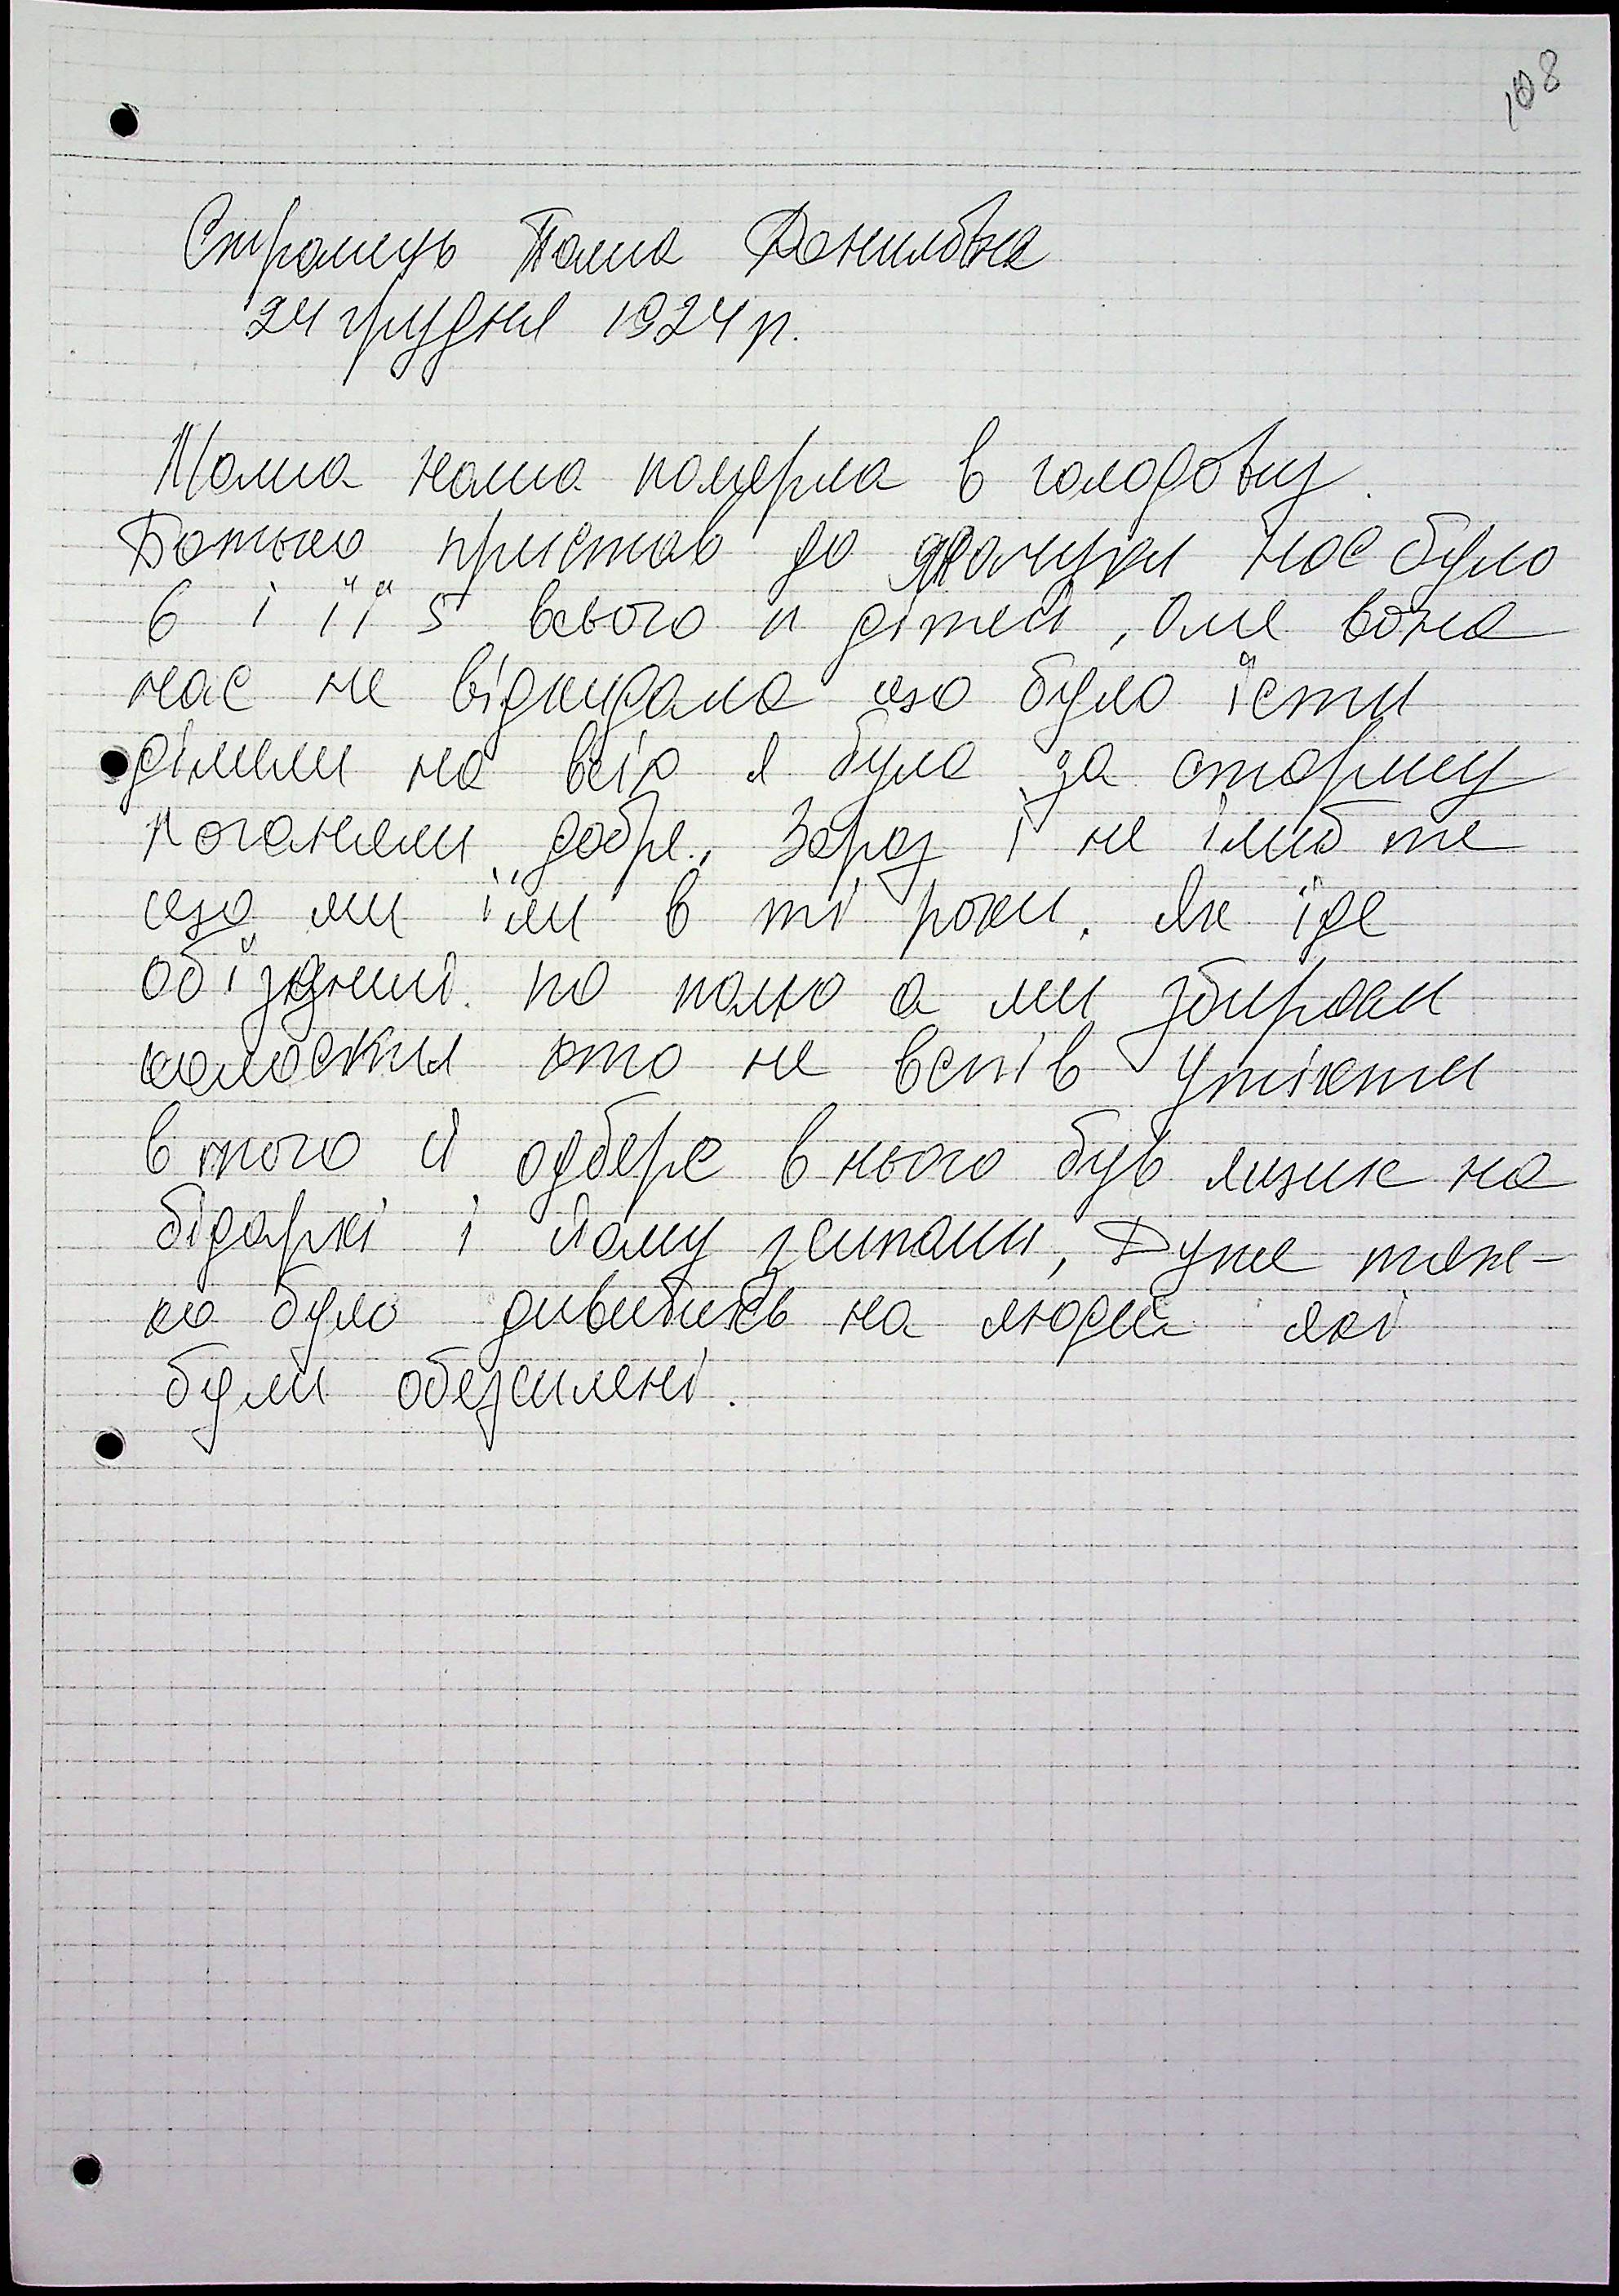 108
Страмець Галина Данилівна
24 грудня 1924 р.
Мама наша померла в голодовку.
Батько пристав до нас було
6 і її 5 всього 11 дітей, але вона
нас не відкидала що було їсти
ділили на всіх я була за старшу
поганяли добре. Зараз і не їмо те
що ми їли в ті роки. Як їде
обїздний по полю а ми збирали
колоски хто не вспів утікти
в того й одбере в нього був ящик на
бідаркі і йому зсипали, Дуже тяж-
ко було дивитись на людей які
були обезсилені.